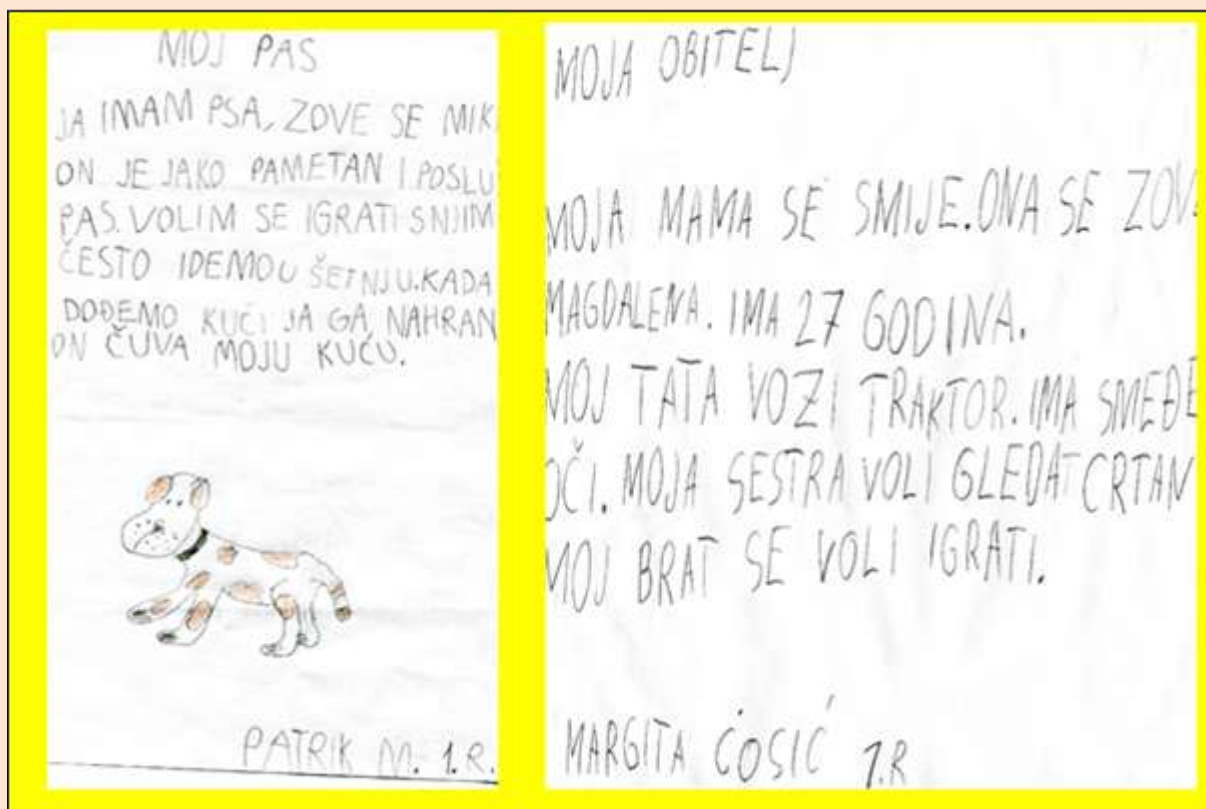 MOJ PAS
JA IMAM PSA, ZOVE SE MIK
ON JE JAKO PAMETAN I POSLU
PAS. VOLIM SE IGRATI S NJIM
ČESTO IDEMO U ŠETNJU. KADA
DOĐEMO KUĆI JA GA NAHRAN
ON ČUVA MOJU KUĆU.
PATRIK M. 1.R.
MOJA OBITELJ
MOJA MAMA SE SMIJE. ONA SE ZOV
MAGDALENA. IMA 27 GODINA.
MOJ TATA VOZI TRAKTOR. IMA SMEĐE
OČI. MOJA SESTRA VOLI GLEDAT CRTAN
MOJ BRAT SE VOLI IGRATI.
MARGITA ĆOSIĆ 1.R